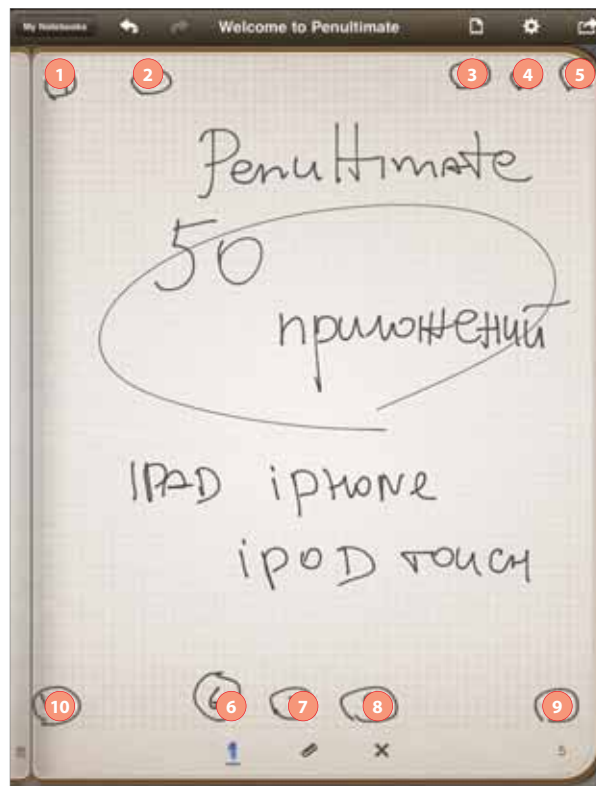 My Notebooks Welcome to Penultimate
1 2 3 4 5
Penultimate
50
приложений
IPAD iPHONE
iPOD TOUCH
10 6 7 8 9
5